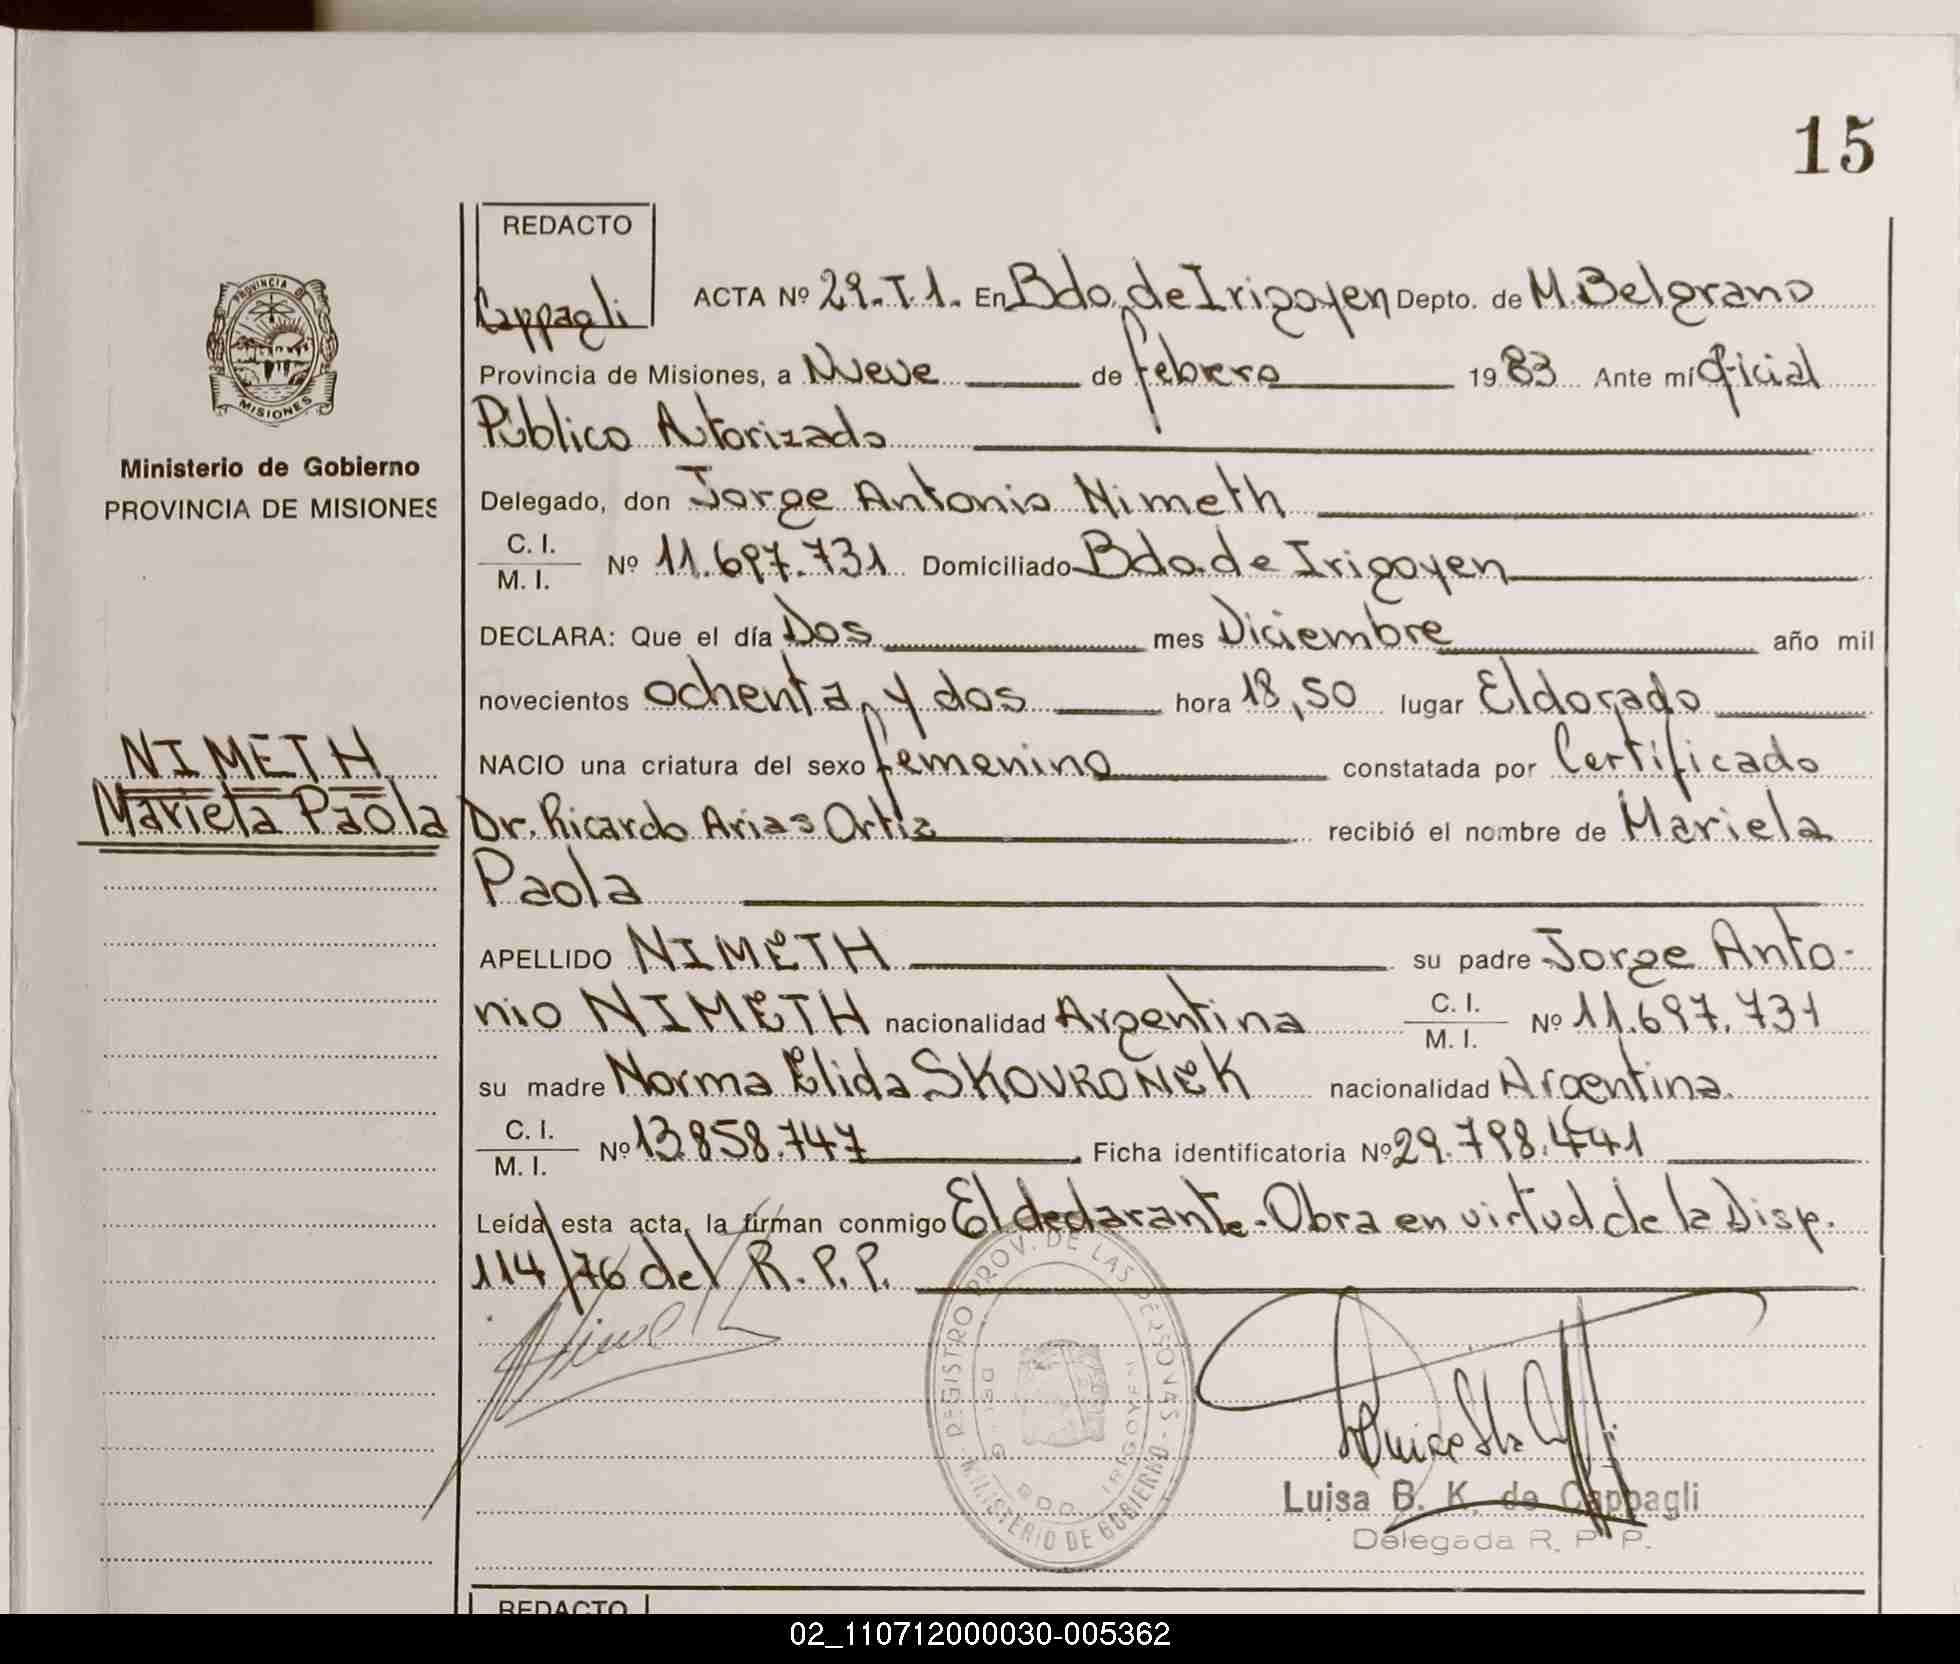 15
REDACTO
Cappagli
PROVINCIA DE
MISIONES
Ministerio de Gobierno
PROVINCIA DE MISIONES
ACTA Nº 29.T1. En Bdo. de Irigoyen Depto. de M. Belgrano
Provincia de Misiones, a Nueve de febrero 1983 Ante mí Oficial
Público Autorizado
Delegado, don Jorge Antonio Nimeth
C. I.
M. I. Nº 11.697.731 Domiciliado Bdo. de Irigoyen
DECLARA: Que el día Dos mes Diciembre año mil
novecientos ochenta y dos hora 18,50 lugar Eldorado
NACIO una criatura del sexo femenino constatada por Certificado
Dr. Ricardo Arias Ortiz recibió el nombre de Mariela
Paola
NIMETH
Mariela Paola
APELLIDO NIMETH su padre Jorge Anto-
nio NIMETH nacionalidad Argentina C. I. M. I. Nº 11.697.731
su madre Norma Elida SKOVRONEK nacionalidad Argentina.
C. I.
M. I. Nº 13.858.747 Ficha identificatoria Nº 29.798.441
Leída esta acta, la firman conmigo El declarante-Obra en virtud de la Disp.
114/76 del R.P.P.
REGISTRO PROV. DE LAS PERSONAS - MINISTERIO DE GOBIERNO
BDO. IRIGOYEN
Luisa B. K. de Cappagli
Delegada R. P. P.
REDACTO
02_110712000030-005362